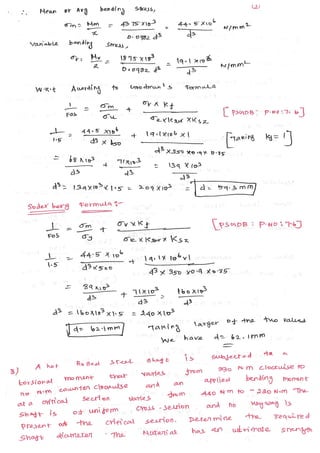 (2)
∴ Mean or Avg bending stress,
σm = Mm / Z = 4375 × 10³ / 0.0982 d³ = 44.5 × 10⁶ / d³ N/mm²
Variable bending stress,
σv = Mv / Z = 1875 × 10³ / 0.0982 d³ = 19.1 × 10⁶ / d³ N/mm²
W.K.T According to Goodman's Formula
1 / FOS = σm / σu + σv × Kf / σe × Ksur × Ksz [PSGDB: P.No: 7.6]
1 / 1.5 = 44.5 × 10⁶ / d³ × 650 + 19.1 × 10⁶ × 1 / d³ × 350 × 0.9 × 0.85 [Taking kf = 1]
= 68 × 10³ / d³ + 71 × 10³ / d³ = 139 × 10³ / d³
d³ = 139 × 10³ × 1.5 = 209 × 10³ = d = 59.3 mm
Soderberg Formula:-
1 / FOS = σm / σy + σv × Kf / σe × Ksur × Ksz [PSGDB: P.NO: 7.6]
1 / 1.5 = 44.5 × 10⁶ / d³ × 500 + 19.1 × 10⁶ × 1 / d³ × 350 × 0.9 × 0.85
= 89 × 10³ / d³ + 71 × 10³ / d³ = 160 × 10³ / d³
d³ = 160 × 10³ × 1.5 = 240 × 10³
d = 62.1mm Taking larger of the two values
We have d = 62.1mm
3) A hot Rolled steel shaft is subjected to a
torsional moment that varies from 330 N-m clockwise to
110 N-m counter clockwise and an applied bending moment
at a critical section varies from 440 N-m to -220 N-m. The
shaft is of uniform cross-section and no keyway is
present at the critical section. Determine the required
shaft diameter. The Material has an ultimate strength